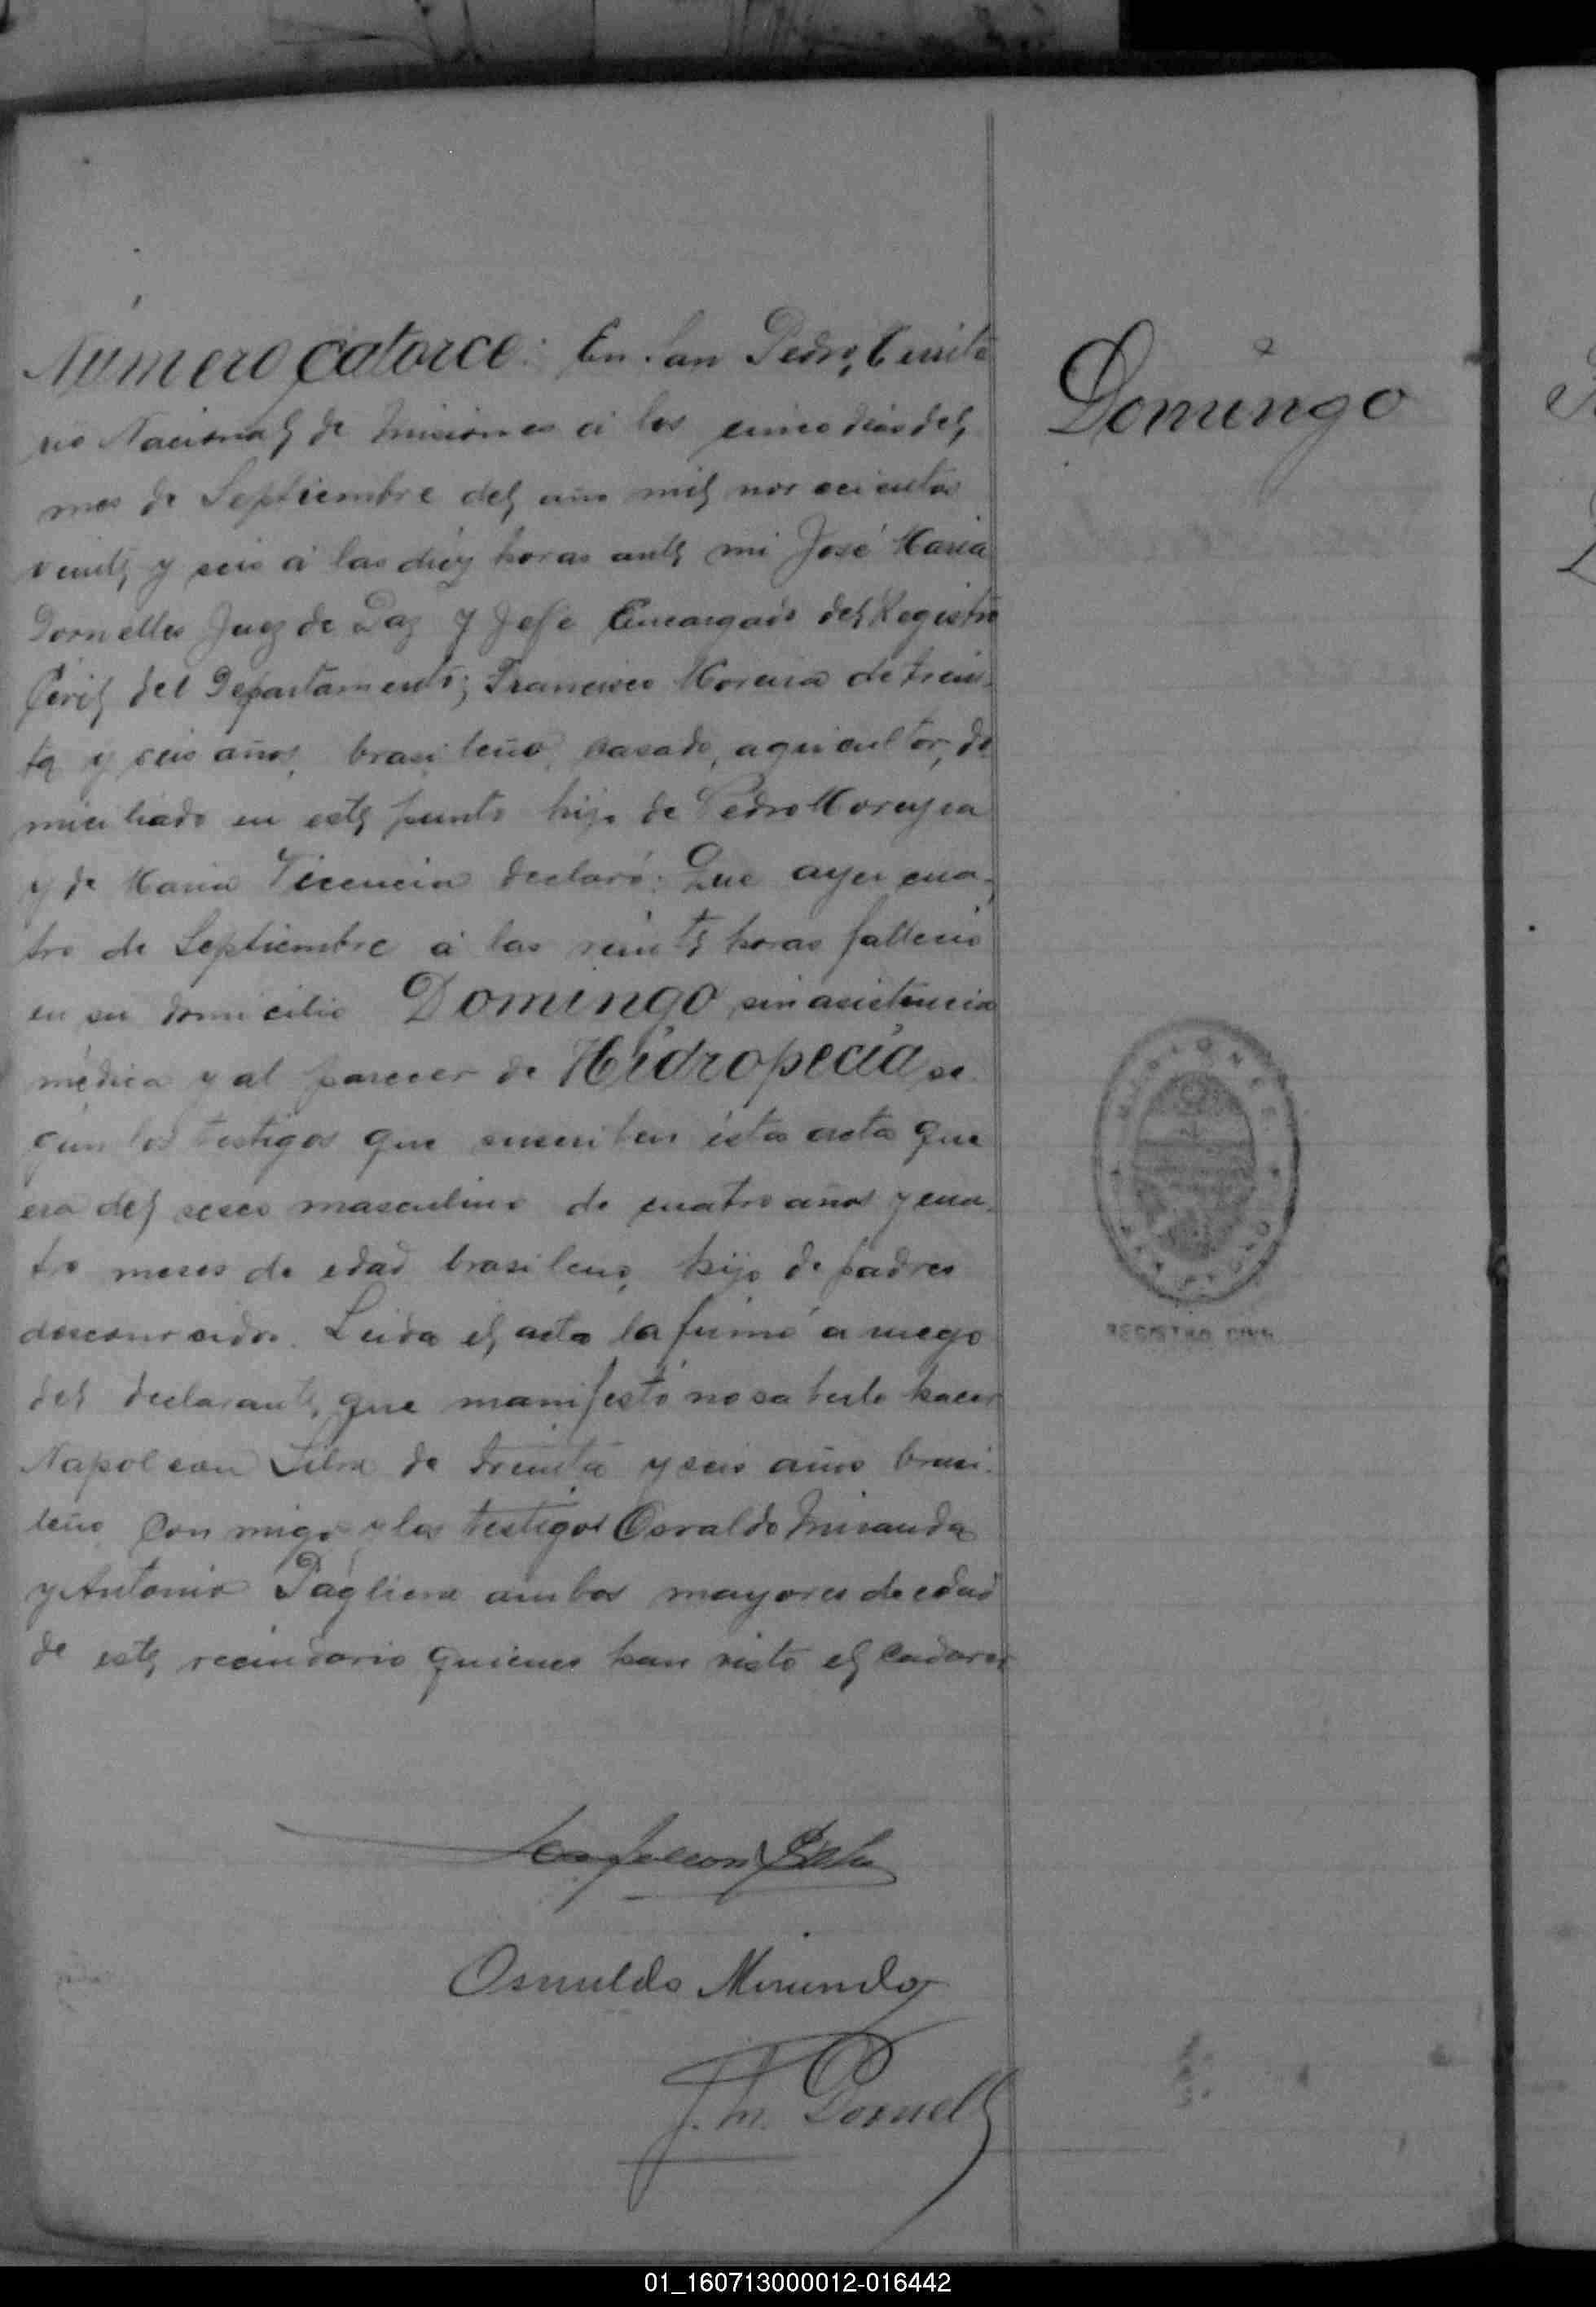 Número Catorce: En San Pedro, Territo
rio Nacional de Misiones á los cinco dias del
mes de Septiembre del año mil novecientos
veinte y seis á las diez horas ante mi José Maria
Dornelles Juez de Paz y Jefe Encargado del Registro
Civil del Departamento; Francisco Moreira de trein-
ta y seis años, brasileño, casado, agricultor, do
miciliado en este punto hijo de Pedro Moreyra
y de Maria declaró: Que ayer cua-
tro de Septiembre á las veinte horas fallecio
en su domicilio Domingo sin asistencia
médica y al parecer de Hidropecia se-
gún los testigos que suscriben ésta acta que
era del sexo masculino de cuatro años y cua-
tro meses de edad brasileno, hijo de padres
desconocidos. Leida el acta la firmó a ruego
del declarante, que manifestó no saberlo hacer
Napoleon Silva de treinta y seis años brasi-
leño. Con migo y los testigos Osvaldo Miranda
y Antonio Pagliera ambos mayores de edad
de este vecindario quienes han visto el cadaver
Napoleon Silva
Osvaldo Miranda
J. M. Dornell
Domingo
MISIONES
REGISTRO CIVIL
01_160713000012-016442